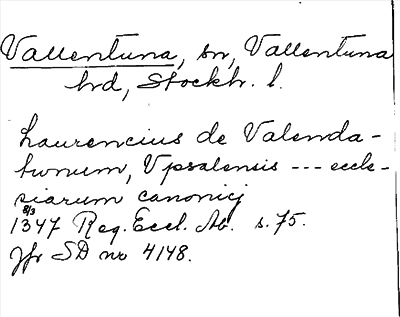 Vallentuna, sn, Vallentuna
hrd, Stockh. l.
Laurencius de Valenda-
tunum, Vpsalensis --- eccle-
siarum canonicj
8/3
1347 Reg. Eccl. Ab. s. 75.
Jfr SD no 4148.